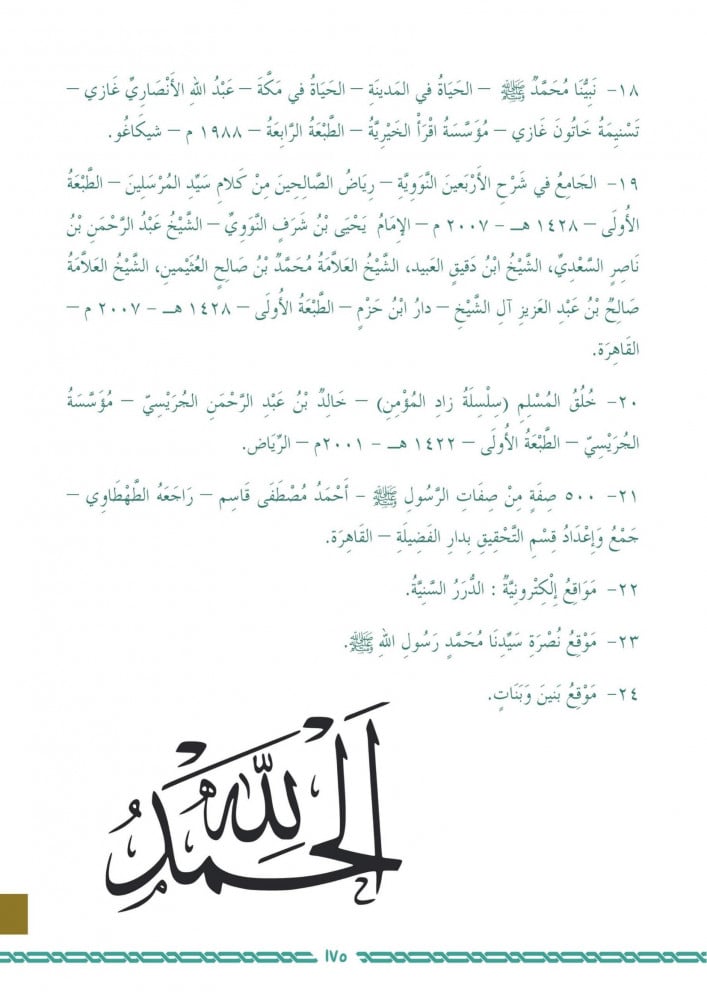 ١٨- نَبِيُّنَا مُحَمَّدٌ ﷺ – الحَيَاةُ في المَدينَةِ – الحَيَاةُ في مَكَّةَ – عَبْدُ اللهِ الأَنْصَارِيِّ غَازي –
تَسْنِيمَةُ خَاتُونَ غَازي – مُؤَسَّسَةُ اقْرَأْ الخَيْرِيَّةُ – الطَّبْعَةُ الرَّابِعَةُ – ١٩٨٨ م – شيكَاغُو.
١٩- الجَامِعُ في شَرْحِ الأَرْبَعينَ النَّوَوِيَّةِ – رِيَاضُ الصَّالِحِينَ مِنْ كَلامِ سَيِّدِ المُرْسَلينَ – الطَّبْعَةُ
الأُولَى – ١٤٢٨ هـ – ٢٠٠٧ م – الإِمَامُ يَحْيَى بْنُ شَرَفٍ النَّوَوِيِّ – الشَّيْخُ عَبْدُ الرَّحْمَنِ بْنُ
نَاصِرٍ السَّعْدِيِّ، الشَّيْخُ ابْنُ دَقيقٍ العَبيد، الشَّيْخُ العَلاَّمَةُ مُحَمَّدُ بْنُ صَالِحٍ العُثَيْمين، الشَّيْخُ العَلاَّمَةُ
صَالِحُ بْنُ عَبْدِ العَزيزِ آلِ الشَّيْخِ – دارُ ابْنُ حَزْمٍ – الطَّبْعَةُ الأُولَى – ١٤٢٨ هـ – ٢٠٠٧ م –
القَاهِرَة.
٢٠- خُلُقُ المُسْلِمِ (سِلْسِلَةُ زادِ المُؤْمِنِ) – خَالِدُ بْنُ عَبْدِ الرَّحْمَنِ الجُرَيْسِيّ – مُؤَسَّسَةُ
الجُرَيْسِيّ – الطَّبْعَةُ الأُولَى – ١٤٢٢ هـ – ٢٠٠١م – الرِّيَاض.
٢١- ٥٠٠ صِفَةٍ مِنْ صِفَاتِ الرَّسُولِ ﷺ – أَحْمَدُ مُصْطَفَى قَاسِم – رَاجَعَهُ الطَّهْطَاوِي –
جَمْعُ وَإِعْدَادُ قِسْمِ التَّحْقِيقِ بِدارِ الفَضيلَةِ – القَاهِرَة.
٢٢- مَوَاقِعُ إِلْكِتْرونِيَّةٌ : الدُّرَرُ السَّنِيَّةُ.
٢٣- مَوْقِعُ نُصْرَةِ سَيِّدِنَا مُحَمَّدٍ رَسُولِ اللهِ ﷺ.
٢٤- مَوْقِعُ بَنينَ وَبَنَاتٍ.
الْحَمْدُ لِلَّهِ
١٧٥